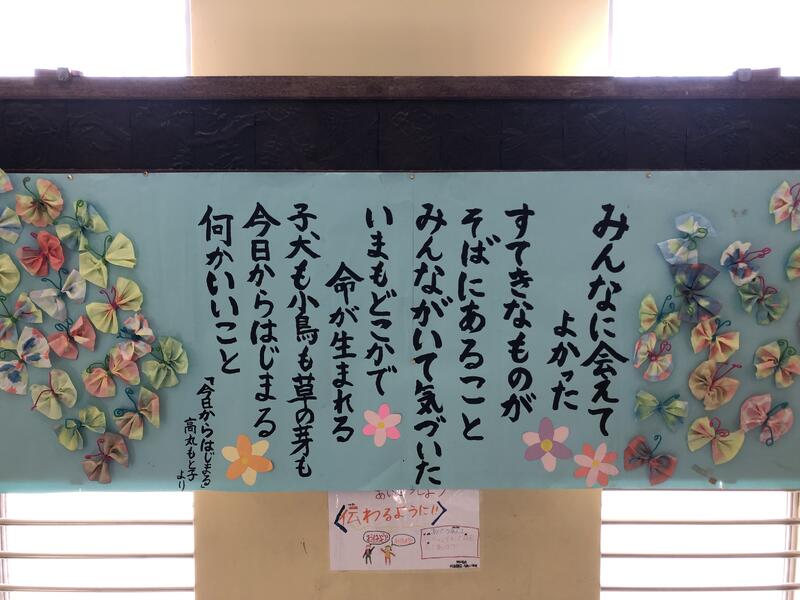 みんなに会えて
よかった
すてきなものが
そばにあること
みんながいて気づいた
いまもどこかで
命が生まれる
子犬も小鳥も草の芽も
今日からはじまる
何かいいこと
「今日からはじまる」
高丸もと子
より
伝わるように!!
おはよう